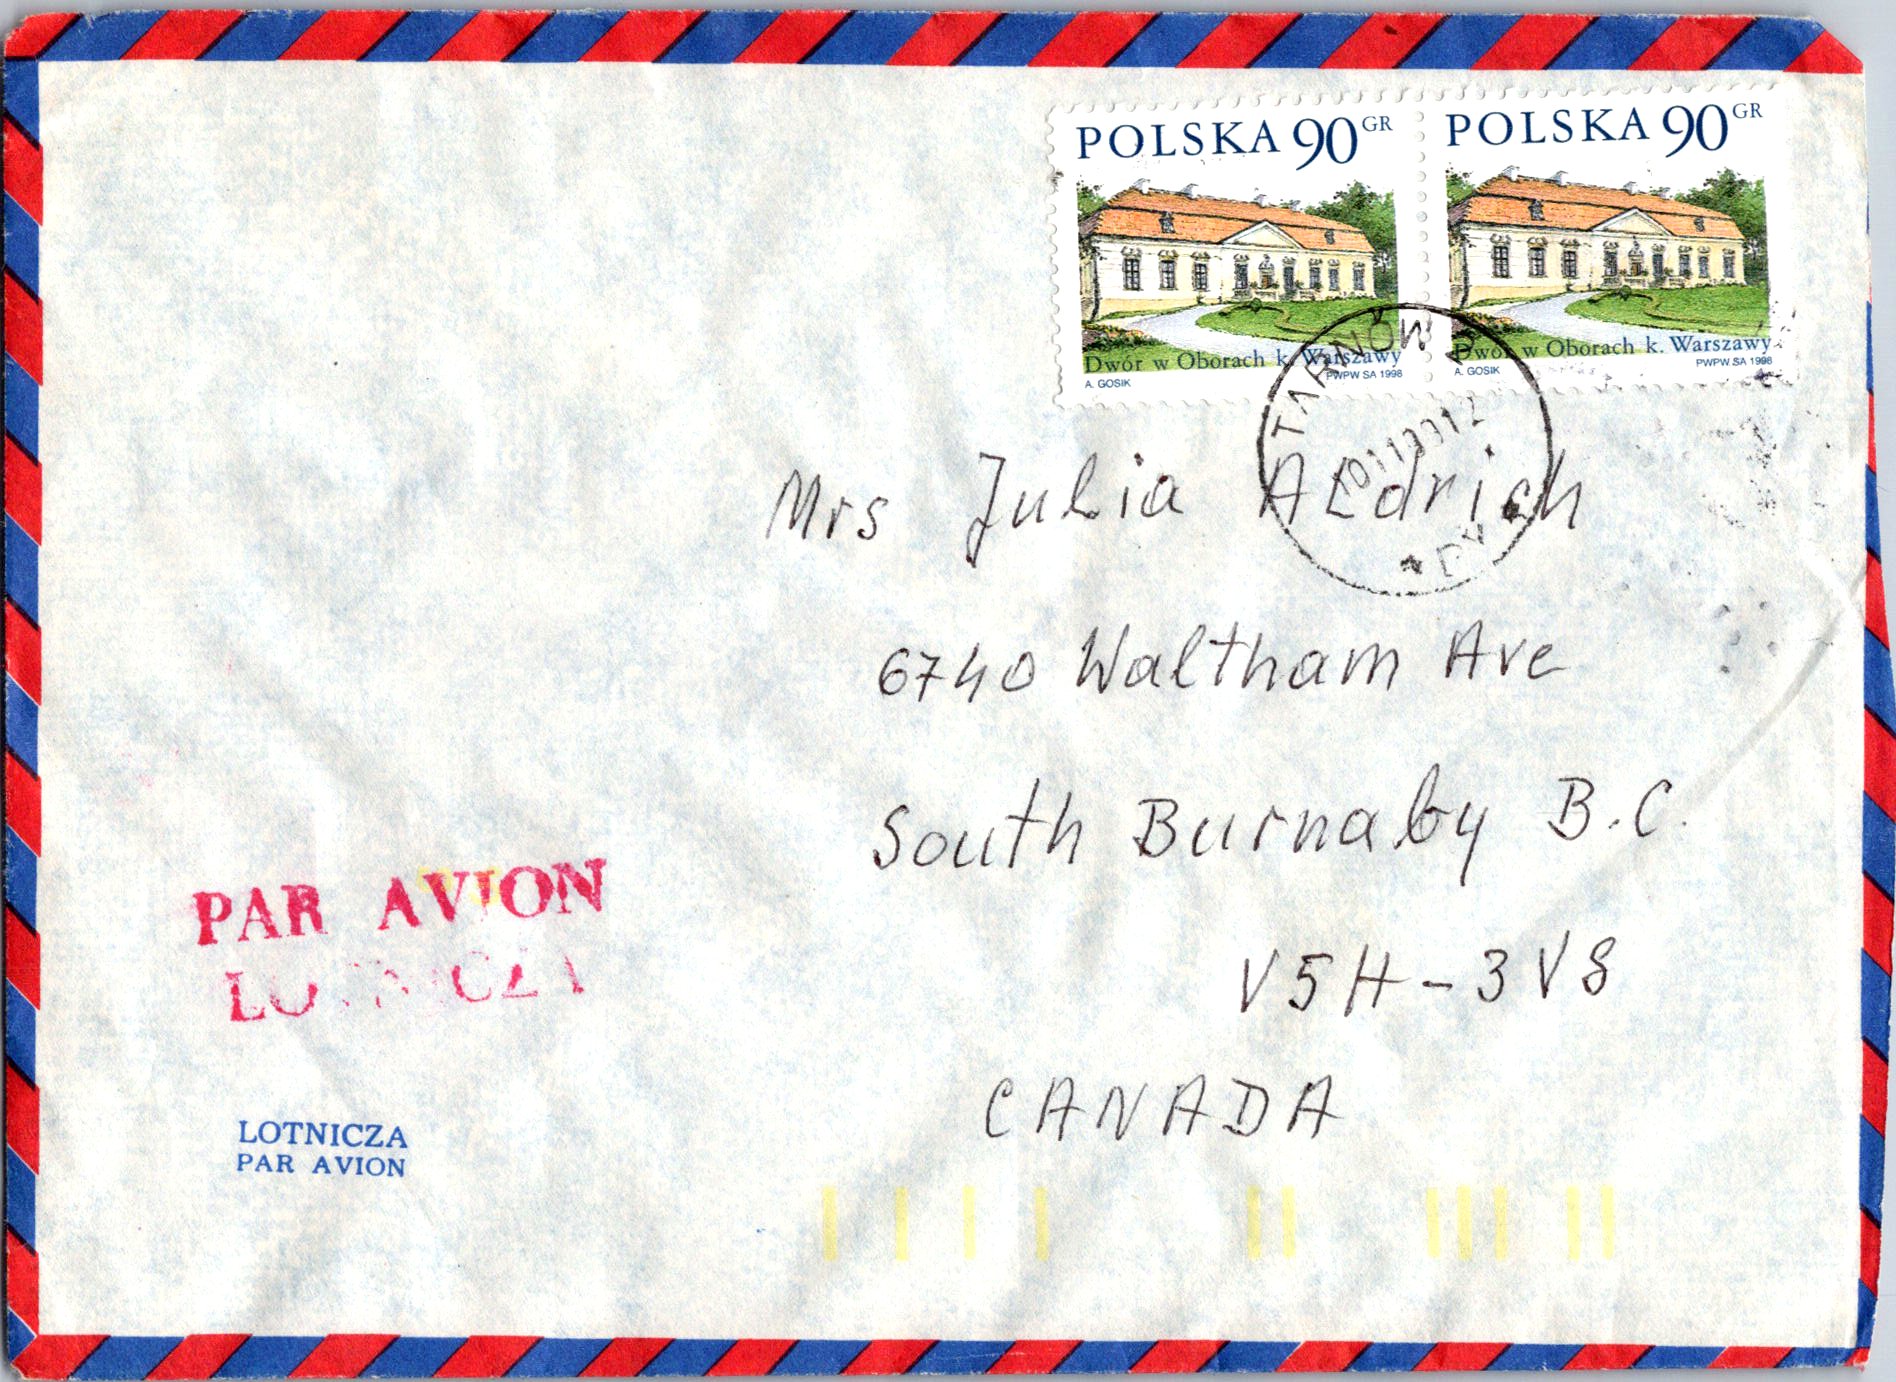 POLSKA 90 GR
Dwór w Oborach k. Warszawy
A. GOSIK PWPW SA 1998
POLSKA 90 GR
Dwór w Oborach k. Warszawy
A. GOSIK PWPW SA 1998
TARNÓW
Mrs Julia Aldrich
6740 Waltham Ave
South Burnaby B.C.
V5H-3V8
CANADA
PAR AVION
LOTNICZA
LOTNICZA
PAR AVION